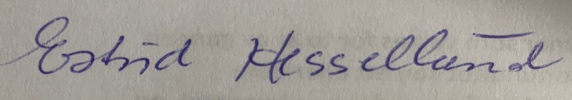 Estrid Hessellund